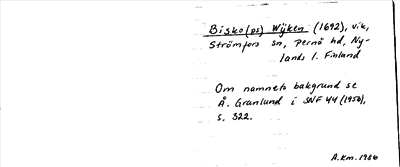 Bisko(ps) Wijken (1692), vik,
Strömfors sn, Pernå hd, Ny-
lands l. Finland
Om namnets bakgrund se
Å. Granlund i SNF 44 (1956),
s. 322.
A.Km. 1986